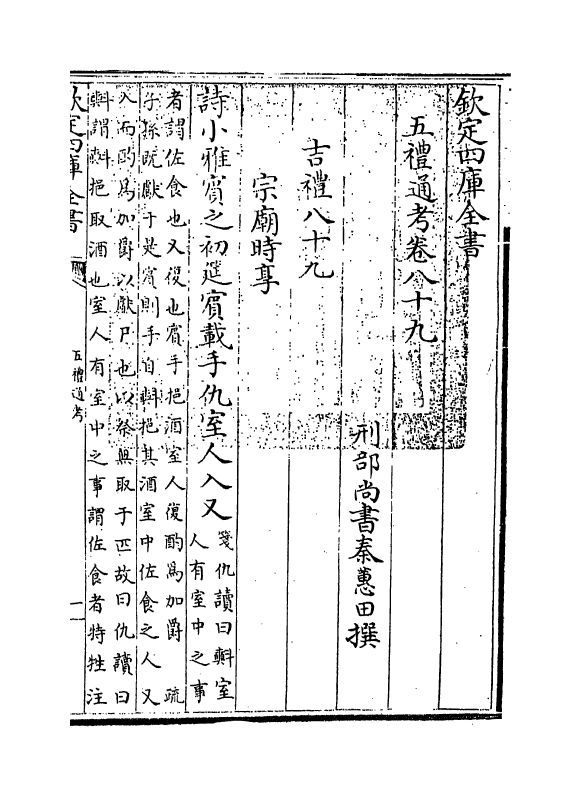 欽定四庫全書
五禮通考卷八十九
刑部尚書秦蕙田撰
吉禮八十九
宗廟時享
詩小雅賓之初筵賓載手仇室人入又
箋仇讀曰㪺室
人有室中之事
者謂佐食也又復也賓手挹酒室人復酌為加爵 疏
子孫既獻于是賓則手自㪺挹其酒室中佐食之人又
入而酌為加爵以獻尸也以祭無取于匹故曰仇讀曰
㪺謂㪺挹取酒也室人有室中之事謂佐食者特牲注
欽定四庫全書
五禮通考
一